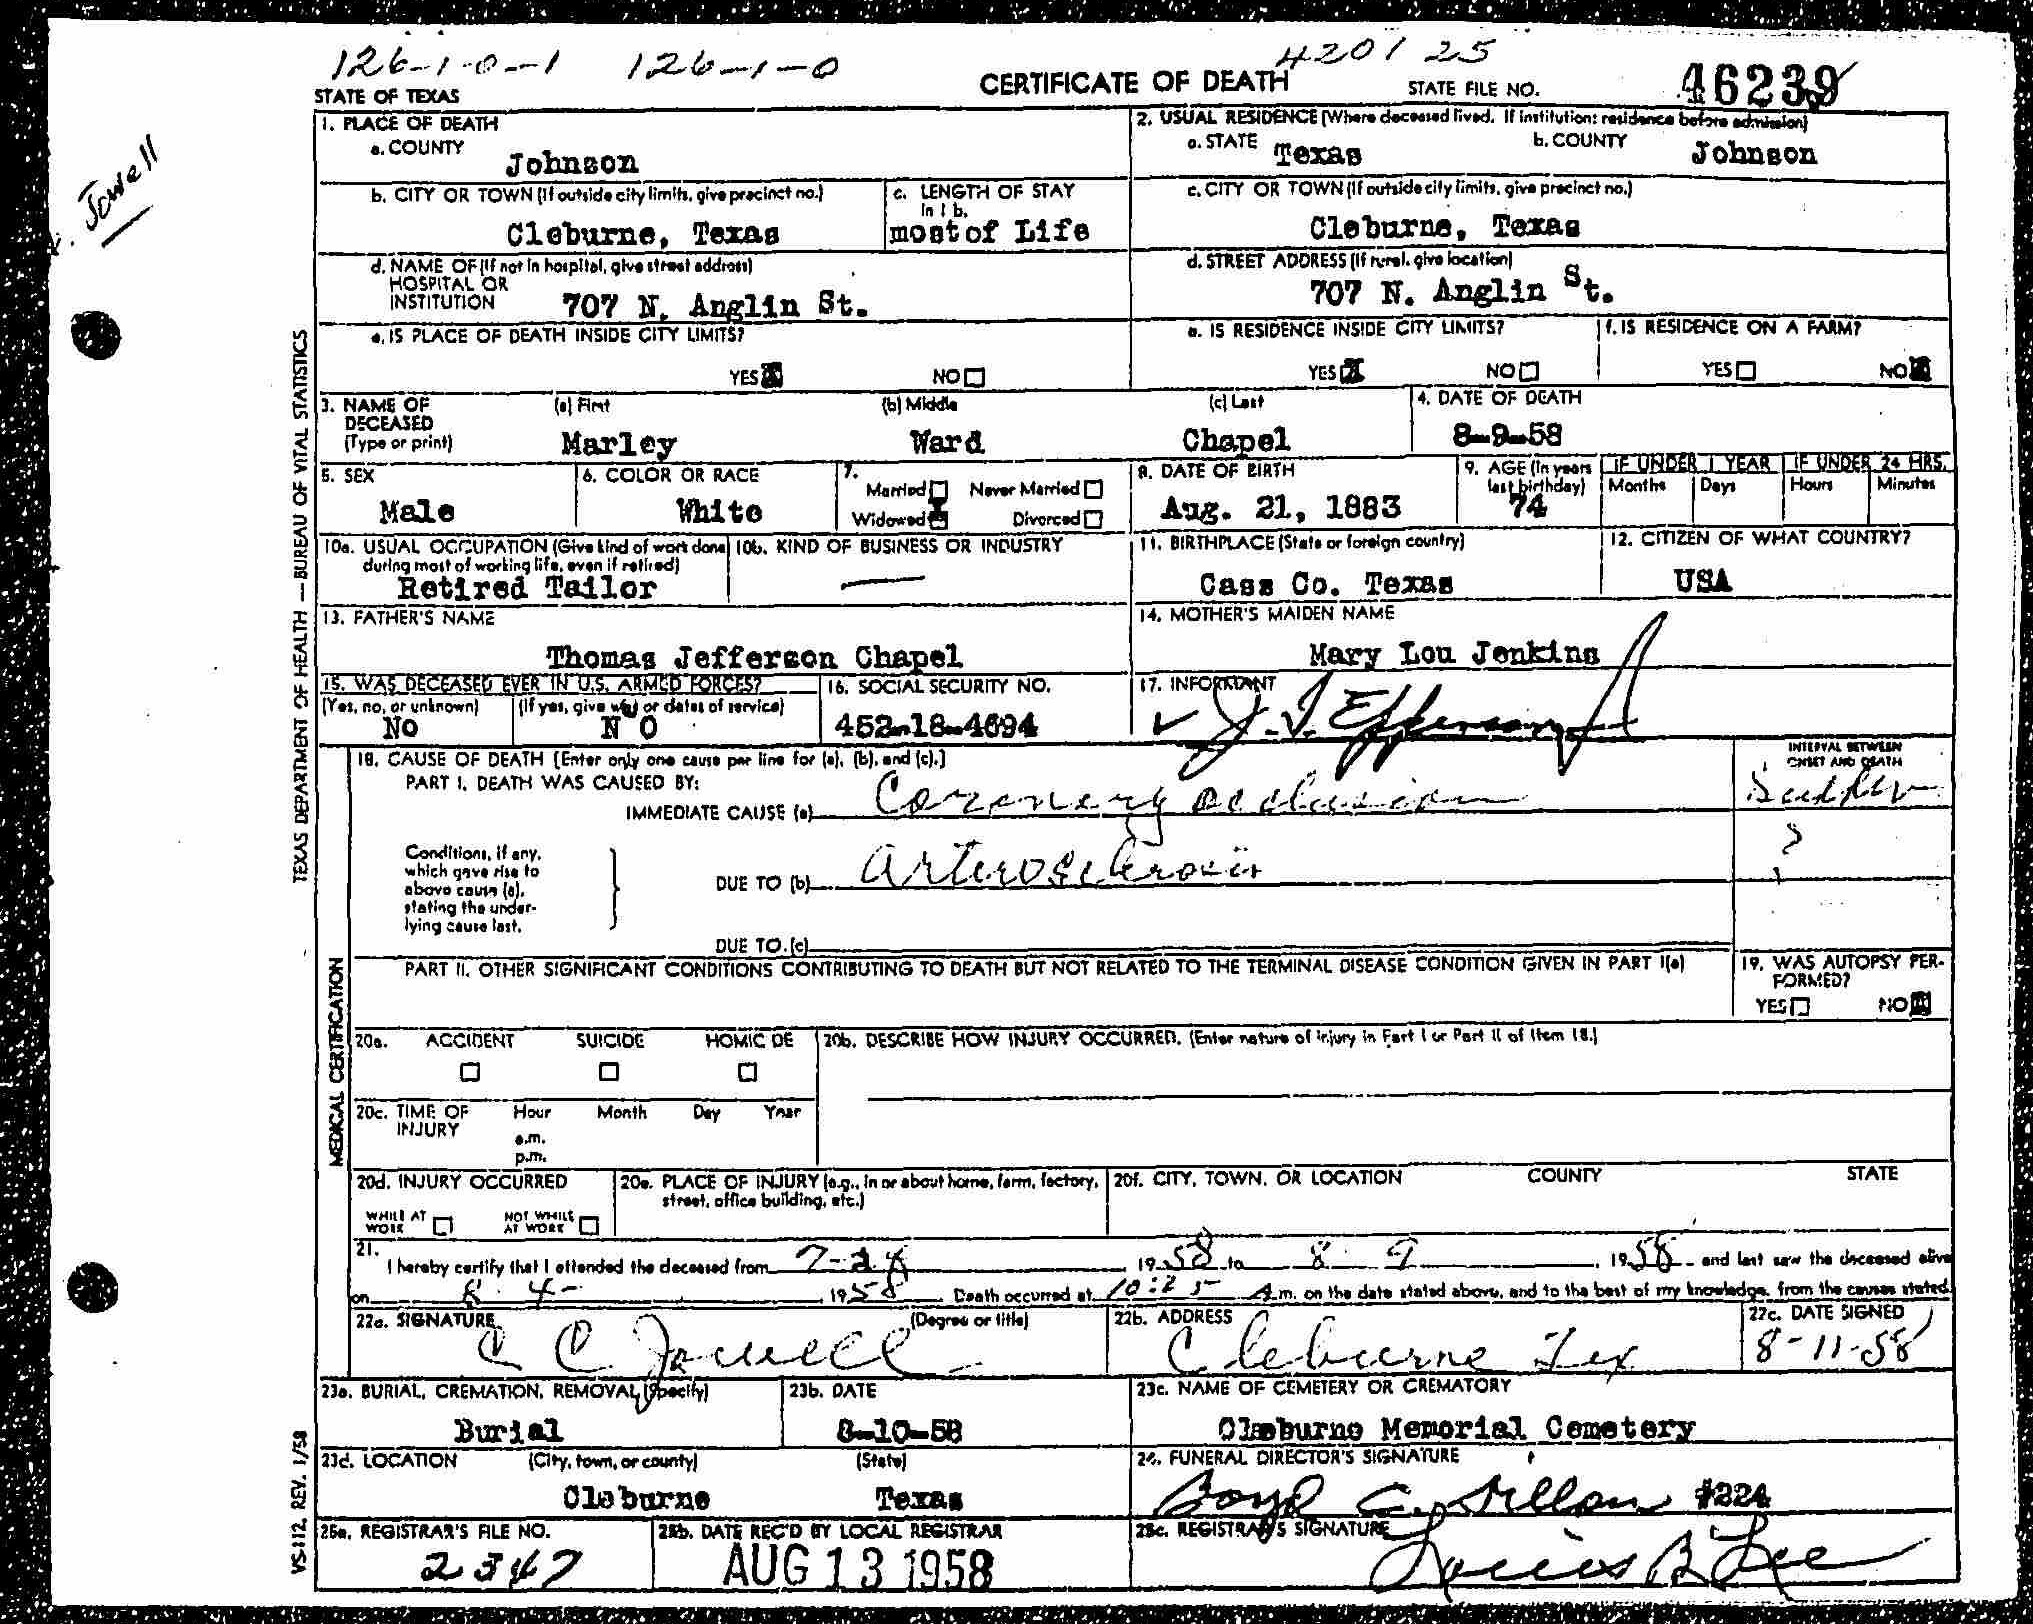 126-1-0-1 126-1-0 4201 25
STATE OF TEXAS CERTIFICATE OF DEATH STATE FILE NO. 46239
Jowell
TEXAS DEPARTMENT OF HEALTH — BUREAU OF VITAL STATISTICS
1. PLACE OF DEATH
a. COUNTY
Johnson
2. USUAL RESIDENCE (Where deceased lived. If institution: residence before admission)
a. STATE Texas b. COUNTY Johnson
b. CITY OR TOWN (If outside city limits, give precinct no.)
Cleburne, Texas
c. LENGTH OF STAY
in 1 b.
most of Life
c. CITY OR TOWN (If outside city limits, give precinct no.)
Cleburne, Texas
d. NAME OF (If not in hospital, give street address)
HOSPITAL OR
INSTITUTION 707 N. Anglin St.
d. STREET ADDRESS (If rural, give location)
707 N. Anglin St.
e. IS PLACE OF DEATH INSIDE CITY LIMITS?
YES NO
e. IS RESIDENCE INSIDE CITY LIMITS?
YES NO
f. IS RESIDENCE ON A FARM?
YES NO
3. NAME OF
DECEASED
(Type or print)
(a) First (b) Middle (c) Last
Marley Ward Chapel
4. DATE OF DEATH
8-9-58
5. SEX
Male
6. COLOR OR RACE
White
7.
Married Never Married
Widowed Divorced
8. DATE OF BIRTH
Aug. 21, 1883
9. AGE (In years
last birthday)
74
IF UNDER 1 YEAR IF UNDER 24 HRS.
Months Days Hours Minutes
10a. USUAL OCCUPATION (Give kind of work done
during most of working life, even if retired)
Retired Tailor
10b. KIND OF BUSINESS OR INDUSTRY
11. BIRTHPLACE (State or foreign country)
Cass Co. Texas
12. CITIZEN OF WHAT COUNTRY?
USA
13. FATHER'S NAME
Thomas Jefferson Chapel
14. MOTHER'S MAIDEN NAME
Mary Lou Jenkins
15. WAS DECEASED EVER IN U.S. ARMED FORCES?
(Yes, no, or unknown) (If yes, give war or dates of service)
No N O
16. SOCIAL SECURITY NO.
452-18-4694
17. INFORMANT
MEDICAL CERTIFICATION
18. CAUSE OF DEATH [Enter only one cause per line for (a), (b), and (c).]
PART I. DEATH WAS CAUSED BY:
IMMEDIATE CAUSE (a) Coronary occlusion
INTERVAL BETWEEN
ONSET AND DEATH
Sudden
Conditions, if any,
which gave rise to
above cause (a),
stating the under-
lying cause last.
DUE TO (b) Arteriosclerosis ?
DUE TO (c)
PART II. OTHER SIGNIFICANT CONDITIONS CONTRIBUTING TO DEATH BUT NOT RELATED TO THE TERMINAL DISEASE CONDITION GIVEN IN PART I(a)
19. WAS AUTOPSY PER-
FORMED?
YES NO
20a. ACCIDENT SUICIDE HOMICIDE
20b. DESCRIBE HOW INJURY OCCURRED. (Enter nature of injury in Part I or Part II of Item 18.)
20c. TIME OF
INJURY
Hour Month Day Year
a.m.
p.m.
20d. INJURY OCCURRED
WHILE AT
WORK
NOT WHILE
AT WORK
20e. PLACE OF INJURY (e.g., in or about home, farm, factory,
street, office building, etc.)
20f. CITY, TOWN, OR LOCATION COUNTY STATE
21.
I hereby certify that I attended the deceased from 7-28 1958 to 8 9 1958 and last saw the deceased alive
on 8 4- 1958 Death occurred at 10:25 A m. on the date stated above, and to the best of my knowledge, from the causes stated.
22a. SIGNATURE (Degree or title)
C C Jowell
22b. ADDRESS
Cleburne Tex
22c. DATE SIGNED
8-11-58
23a. BURIAL, CREMATION, REMOVAL (Specify)
Burial
23b. DATE
8-10-58
23c. NAME OF CEMETERY OR CREMATORY
Cleburne Memorial Cemetery
23d. LOCATION (City, town, or county) (State)
Cleburne Texas
24. FUNERAL DIRECTOR'S SIGNATURE
Boyd C. Dillon #224
25a. REGISTRAR'S FILE NO.
2347
25b. DATE REC'D BY LOCAL REGISTRAR
AUG 13 1958
25c. REGISTRAR'S SIGNATURE
Louis B Lee
VS-112, REV. 1/58